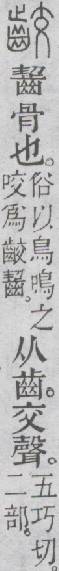 齩齧骨也。俗以鳥鳴之咬爲齩齧。从齒。交聲。五巧切。二部。